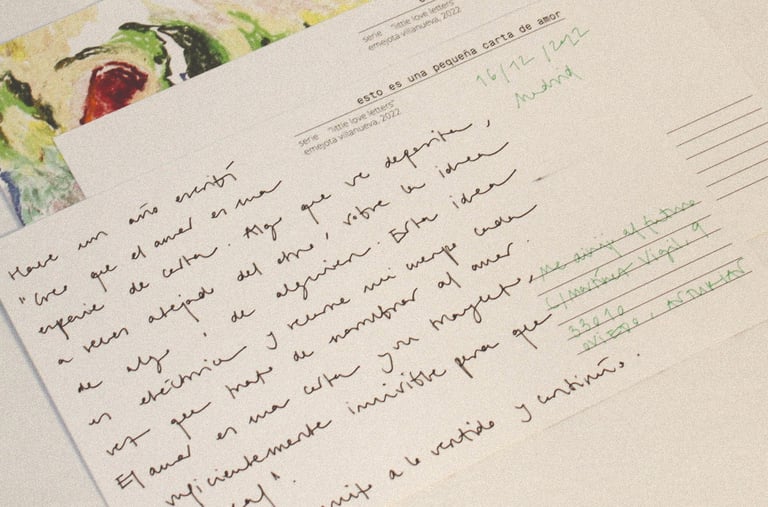 serie "little love letters"
emejota villanueva, 2022
esto es una pequeña carta de amor
serie "little love letters"
emejota villanueva, 2022
16/12/2022
Madrid
Hace un año escribí
"Creo que el amor es una
especie de carta. Algo que se deposita,
a veces alejado del otro, sobre la idea
de algo o de alguien. Esta idea
es eléctrica y recorre mi cuerpo cada
vez que trato de nombrar al amor.
El amor es una carta y un trayecto,
suficientemente invisible para que
a lo vertido y continúo.
Me dirijo al futuro
C/ Martínez Vigil, 9
33010
OVIEDO, ASTURIAS